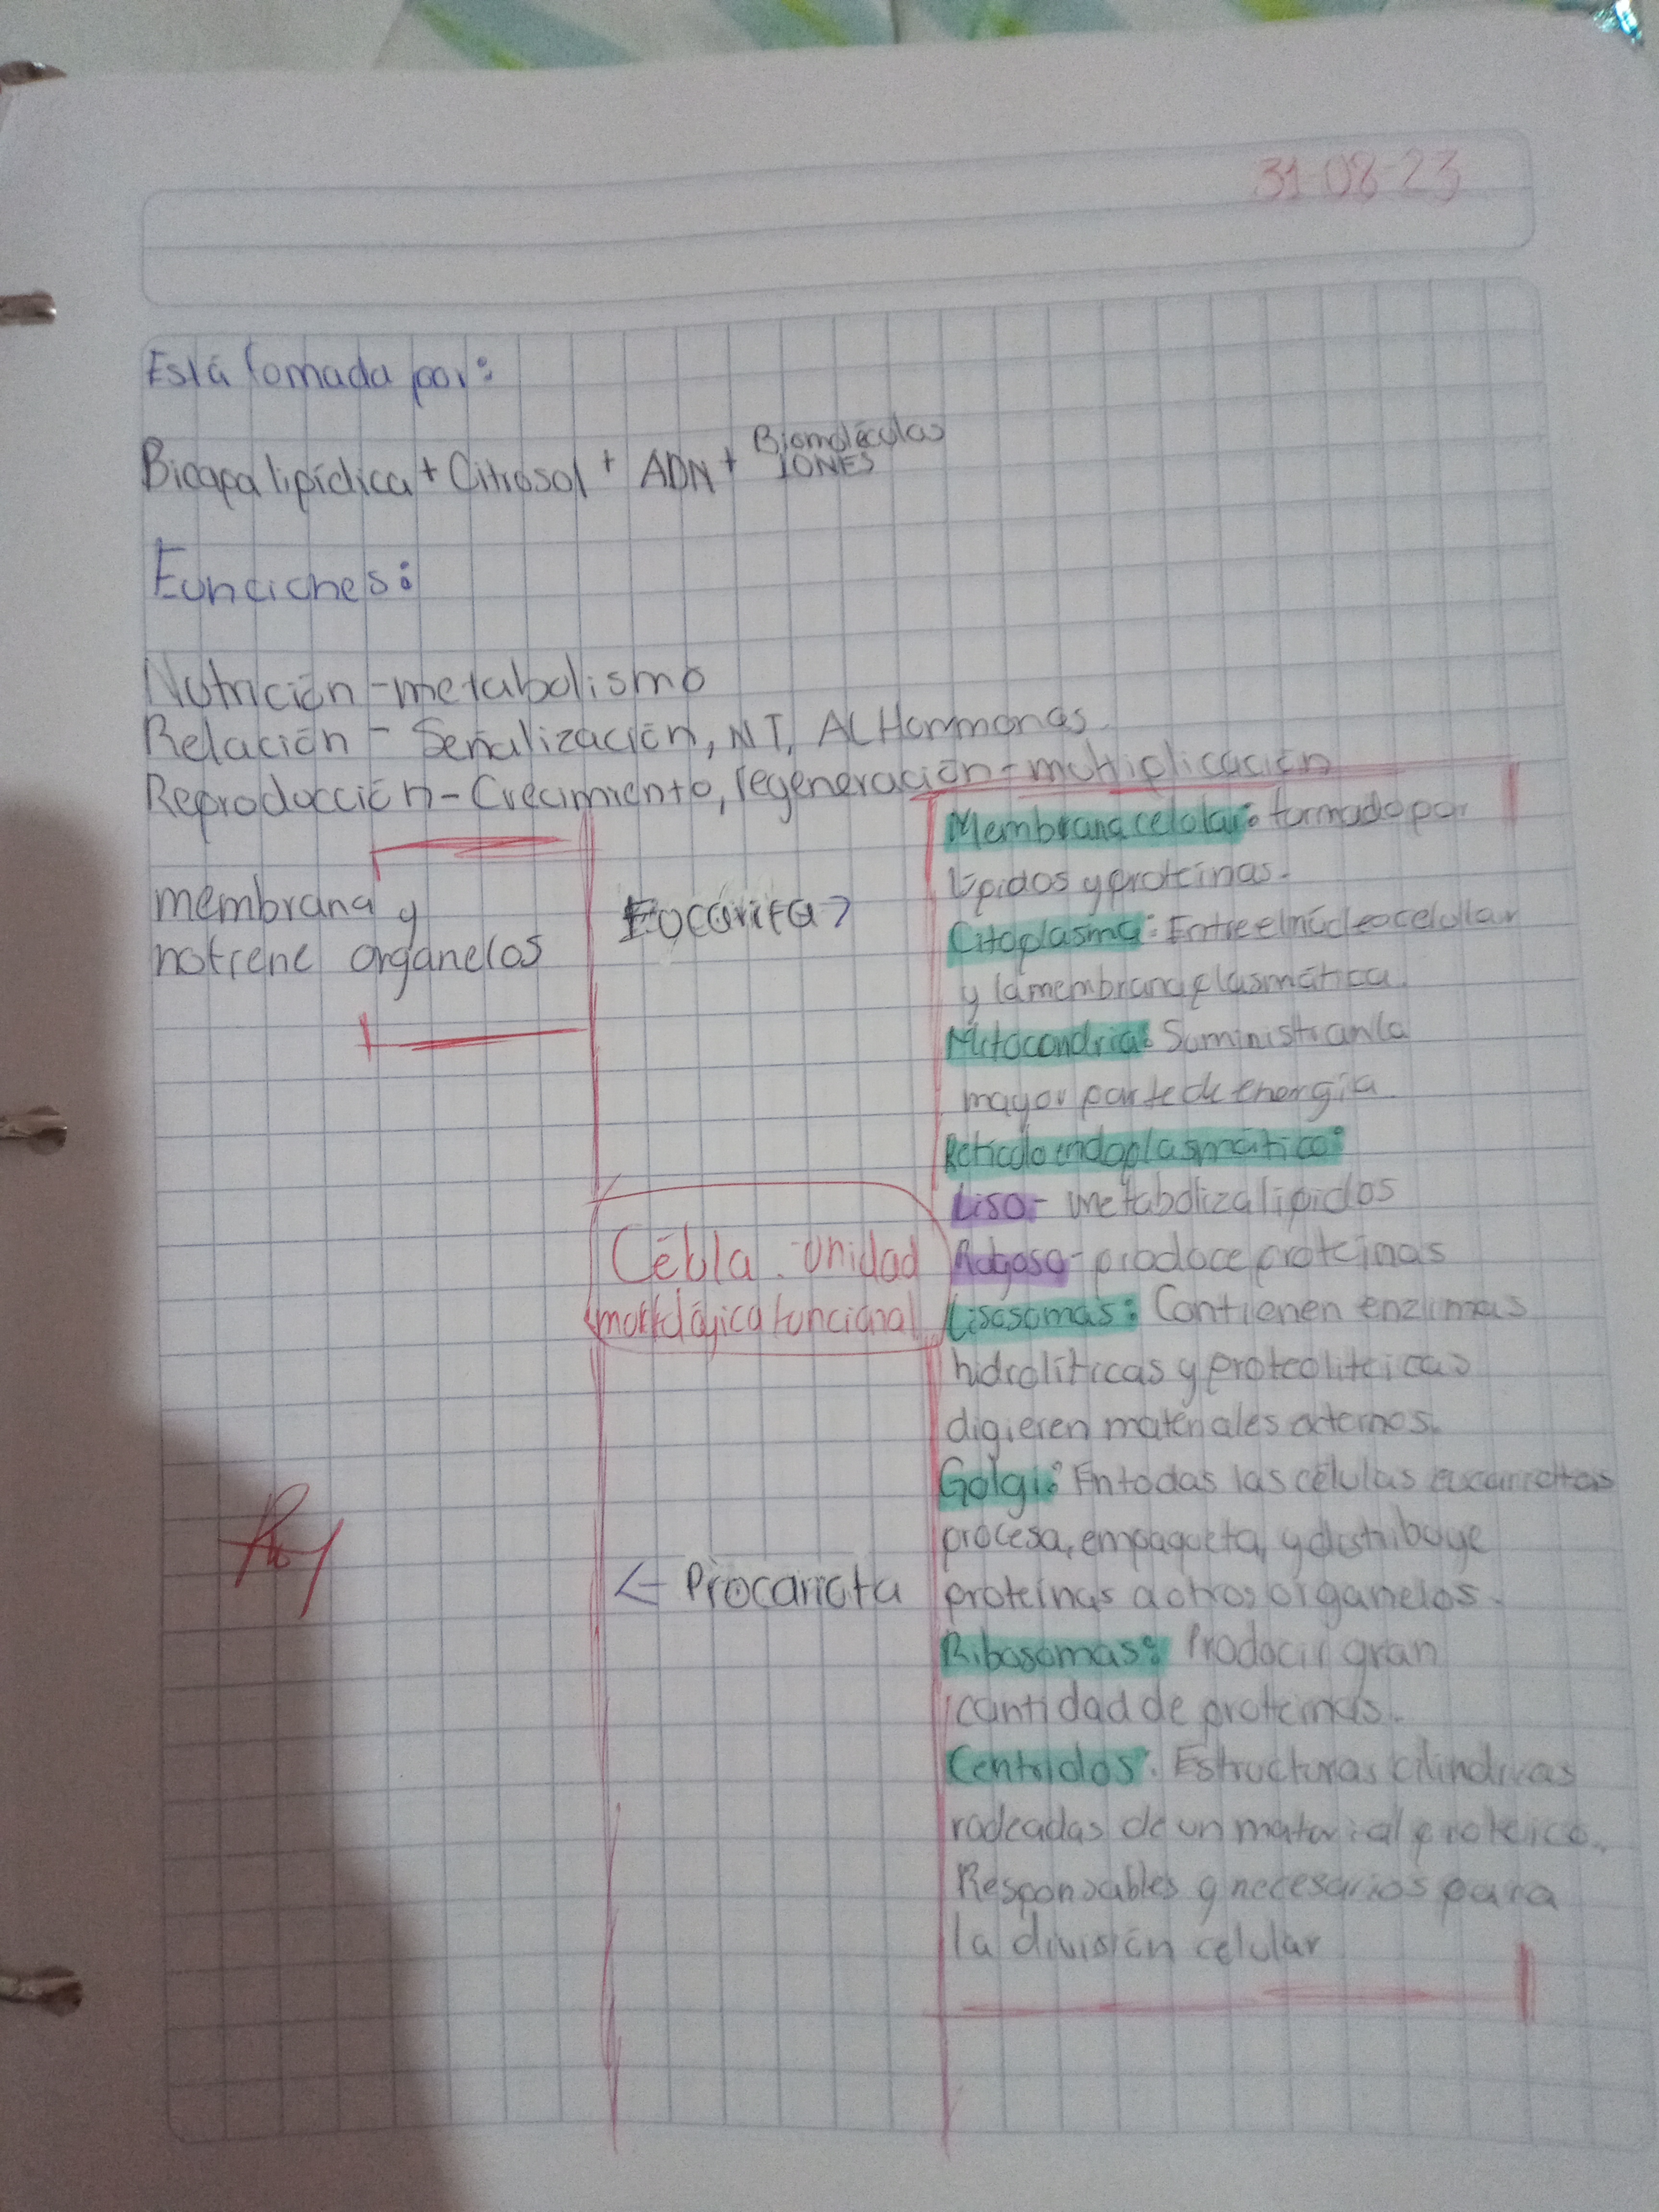 31-08-23
Está fomada por:
Bicapa lipídica + Citrosol + ADN + Biomoléculas
IONES
Funciones:
Nutrición - metabolismo
Relación - Señalización, NT, AC Hormonas.
Reproducción - Crecimiento, regeneración - multiplicación
membrana y
notiene organelos
Eucarita >
Célula - unidad
morfológica funcional
<- Procariota
Membrana celular: formado por
lípidos y proteínas.
Citoplasma: Entre el núcleo celular
y la membrana plasmática.
Mitocondria: Suministran la
mayor parte de energía.
Retículo endoplasmático:
Liso - metaboliza lipidos
Rugoso - produce proteinas
Lisosomas: Contienen enzimas
hidrolíticas y proteoliticas
digieren materiales externos.
Golgi: En todas las células eucariotas
procesa, empaqueta, y distribuye
proteínas a otros organelos.
Ribosomas: Producir gran
cantidad de proteinas.
Centriolos: Estructuras cilindricas
rodeadas de un material proteico.
Responsables y necesarios para
la división celular